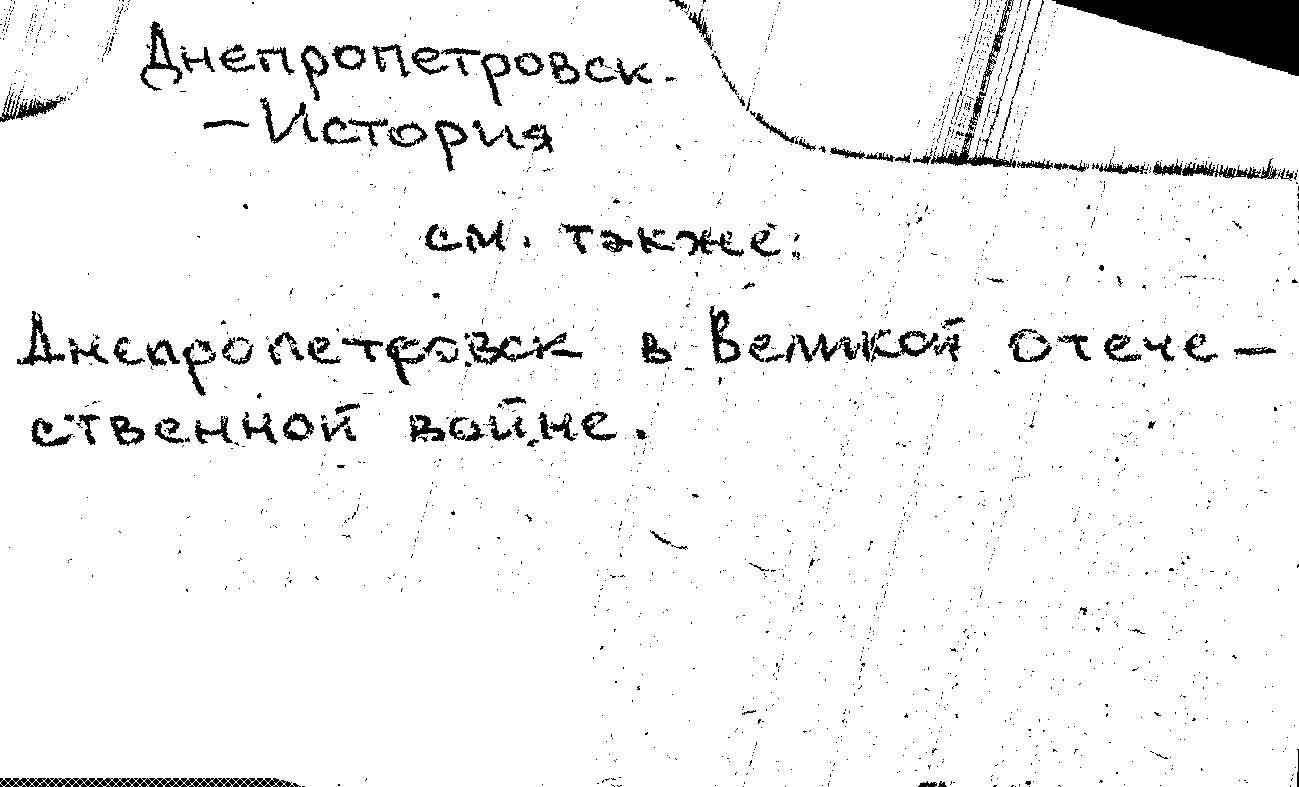 Днепропетровск.
— История
см. также:
Днепропетровск в Великой отече—
ственной войне.